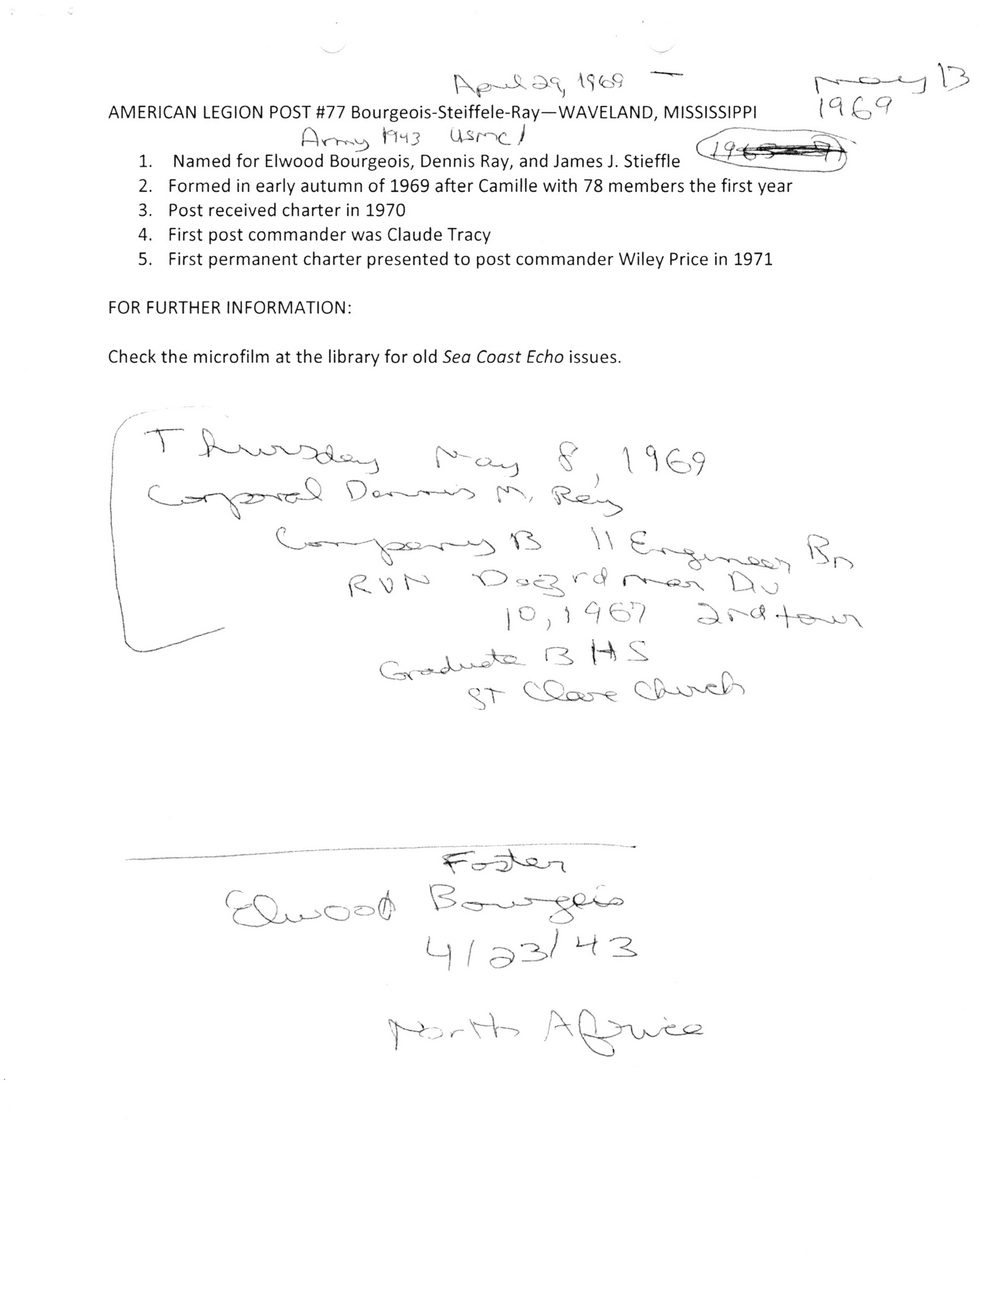 April 29, 1969 —
May 13
1969
AMERICAN LEGION POST #77 Bourgeois-Steiffele-Ray—WAVELAND, MISSISSIPPI
Army 1943 USMC
1. Named for Elwood Bourgeois, Dennis Ray, and James J. Stieffle
2. Formed in early autumn of 1969 after Camille with 78 members the first year
3. Post received charter in 1970
4. First post commander was Claude Tracy
5. First permanent charter presented to post commander Wiley Price in 1971
FOR FURTHER INFORMATION:
Check the microfilm at the library for old Sea Coast Echo issues.
Thursday May 8, 1969
Corporal Dennis M. Ray
Company B 11 Engineer Bn
RVN 3rd Mar Div
10, 1967 2nd tour
Graduate B HS
ST Clare Church
Foster
Elwood Bourgeis
4/23/43
North Africa